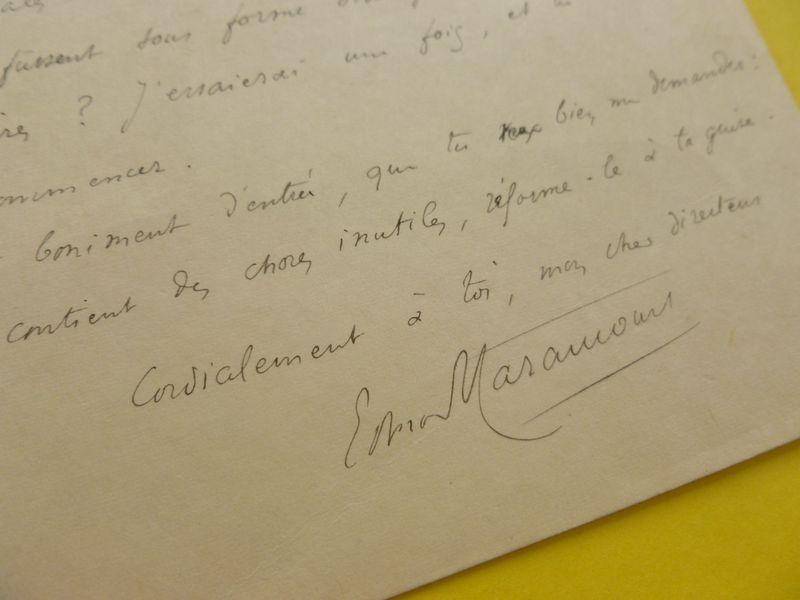 fussent sous forme
? J'essaierai une fois, et tu
commencer.
boniment d'entrée, que tu veux bien me demander :
contient des choses inutiles, réforme-le à ta guise.
Cordialement à toi, mon cher directeur
Edmond Haraucourt